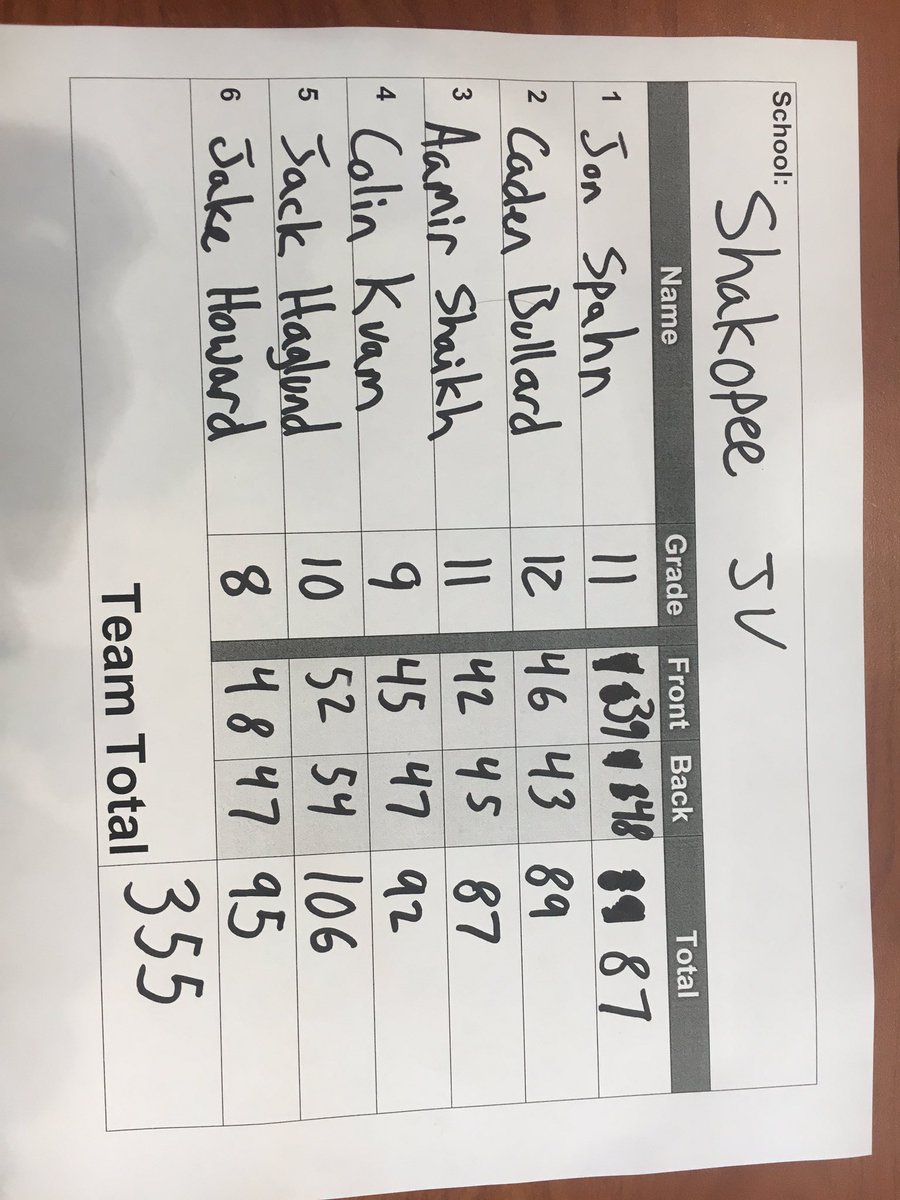 School: Shakopee JV
Name Grade Front Back Total
1 Jon Spahn 11 39 48 87
2 Caden Bullard 12 46 43 89
3 Aamir Shaikh 11 42 45 87
4 Colin Kvam 9 45 47 92
5 Jack Haglund 10 52 54 106
6 Jake Howard 8 48 47 95
Team Total 355